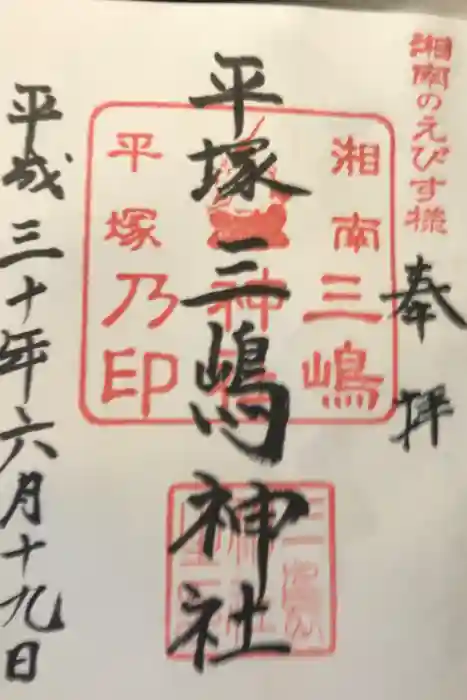 湘南のえびす様
奉拝
湘南三嶋
神社
平塚乃印
平塚三嶋神社
平成三十年六月十九日